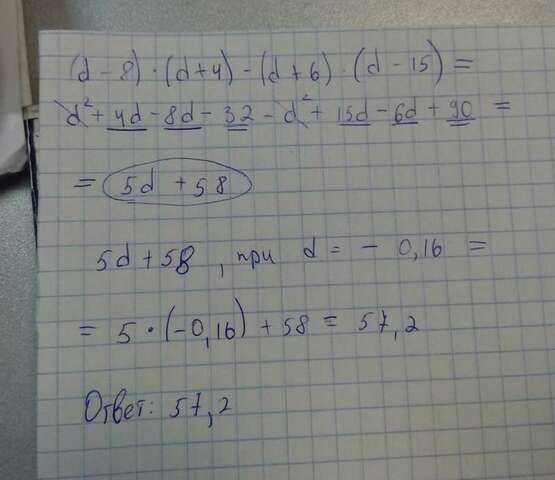 (d - 8) · (d + 4) - (d + 6) · (d - 15) =
d² + 4d - 8d - 32 - d² + 15d - 6d + 90 =
= 5d + 58
5d + 58 , при d = - 0,16 =
= 5 · (-0,16) + 58 = 57,2
Ответ: 57,2